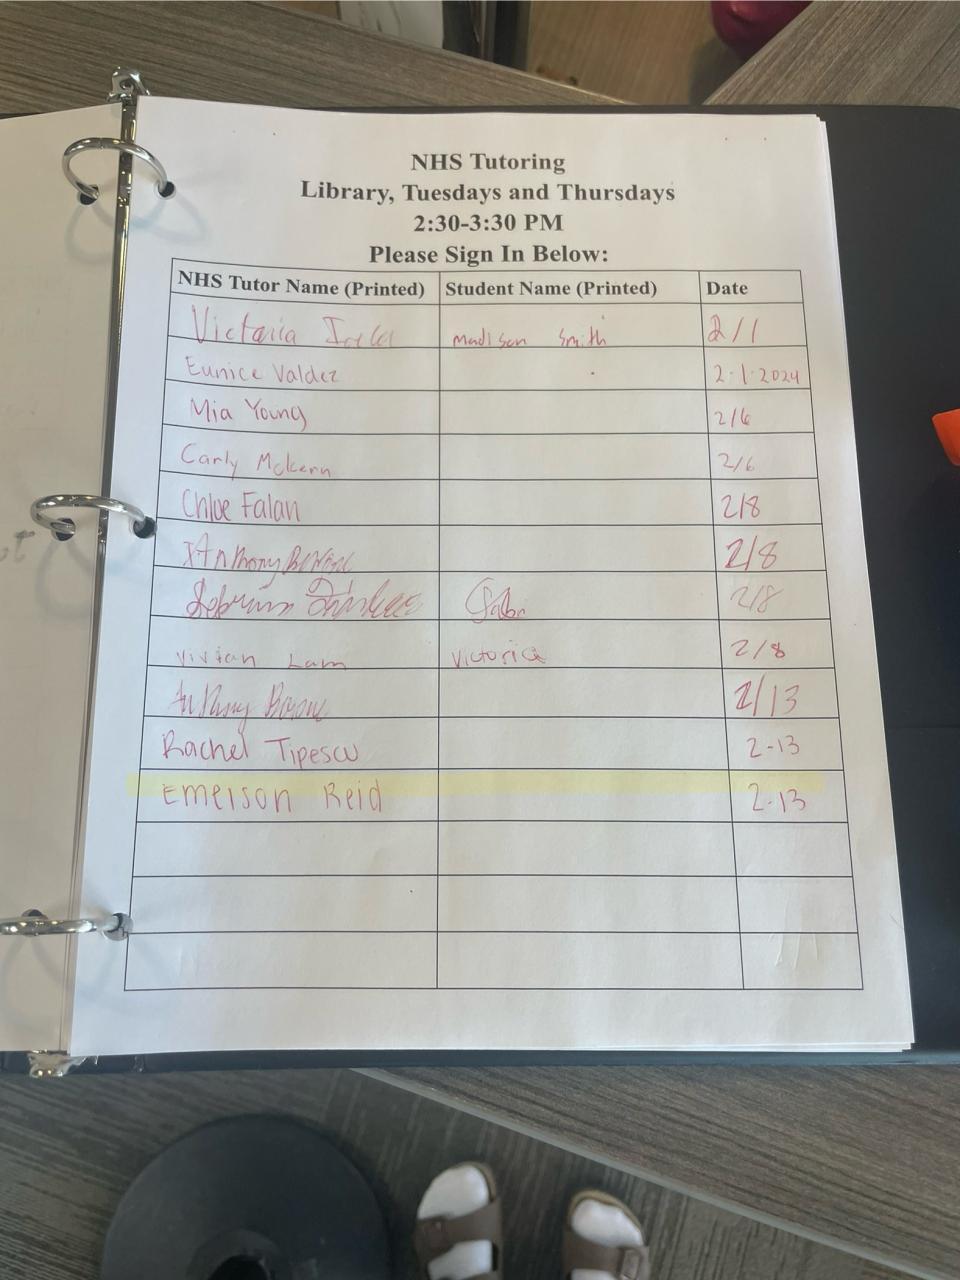 NHS Tutoring
Library, Tuesdays and Thursdays
2:30-3:30 PM
Please Sign In Below:
NHS Tutor Name (Printed) Student Name (Printed) Date
Victoria Madison Smith 2/1
Eunice Valdez 2·1·2024
Mia Young 2/6
Carly Mckern 2/6
Chloe Falan 2/8
Anthony 2/8
2/8
Vivian Lam Victoria 2/8
Anthony 2/13
Rachel Tipescu 2-13
Emerson Reid 2-13